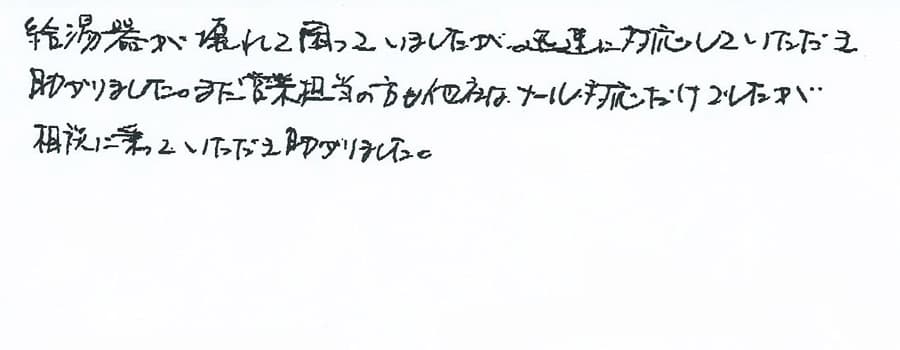 給湯器が壊れて困っていましたが、迅速に対応していただき
助かりました。また営業担当の方も他社は、メール対応だけでしたが
相談に乗っていただき助かりました。